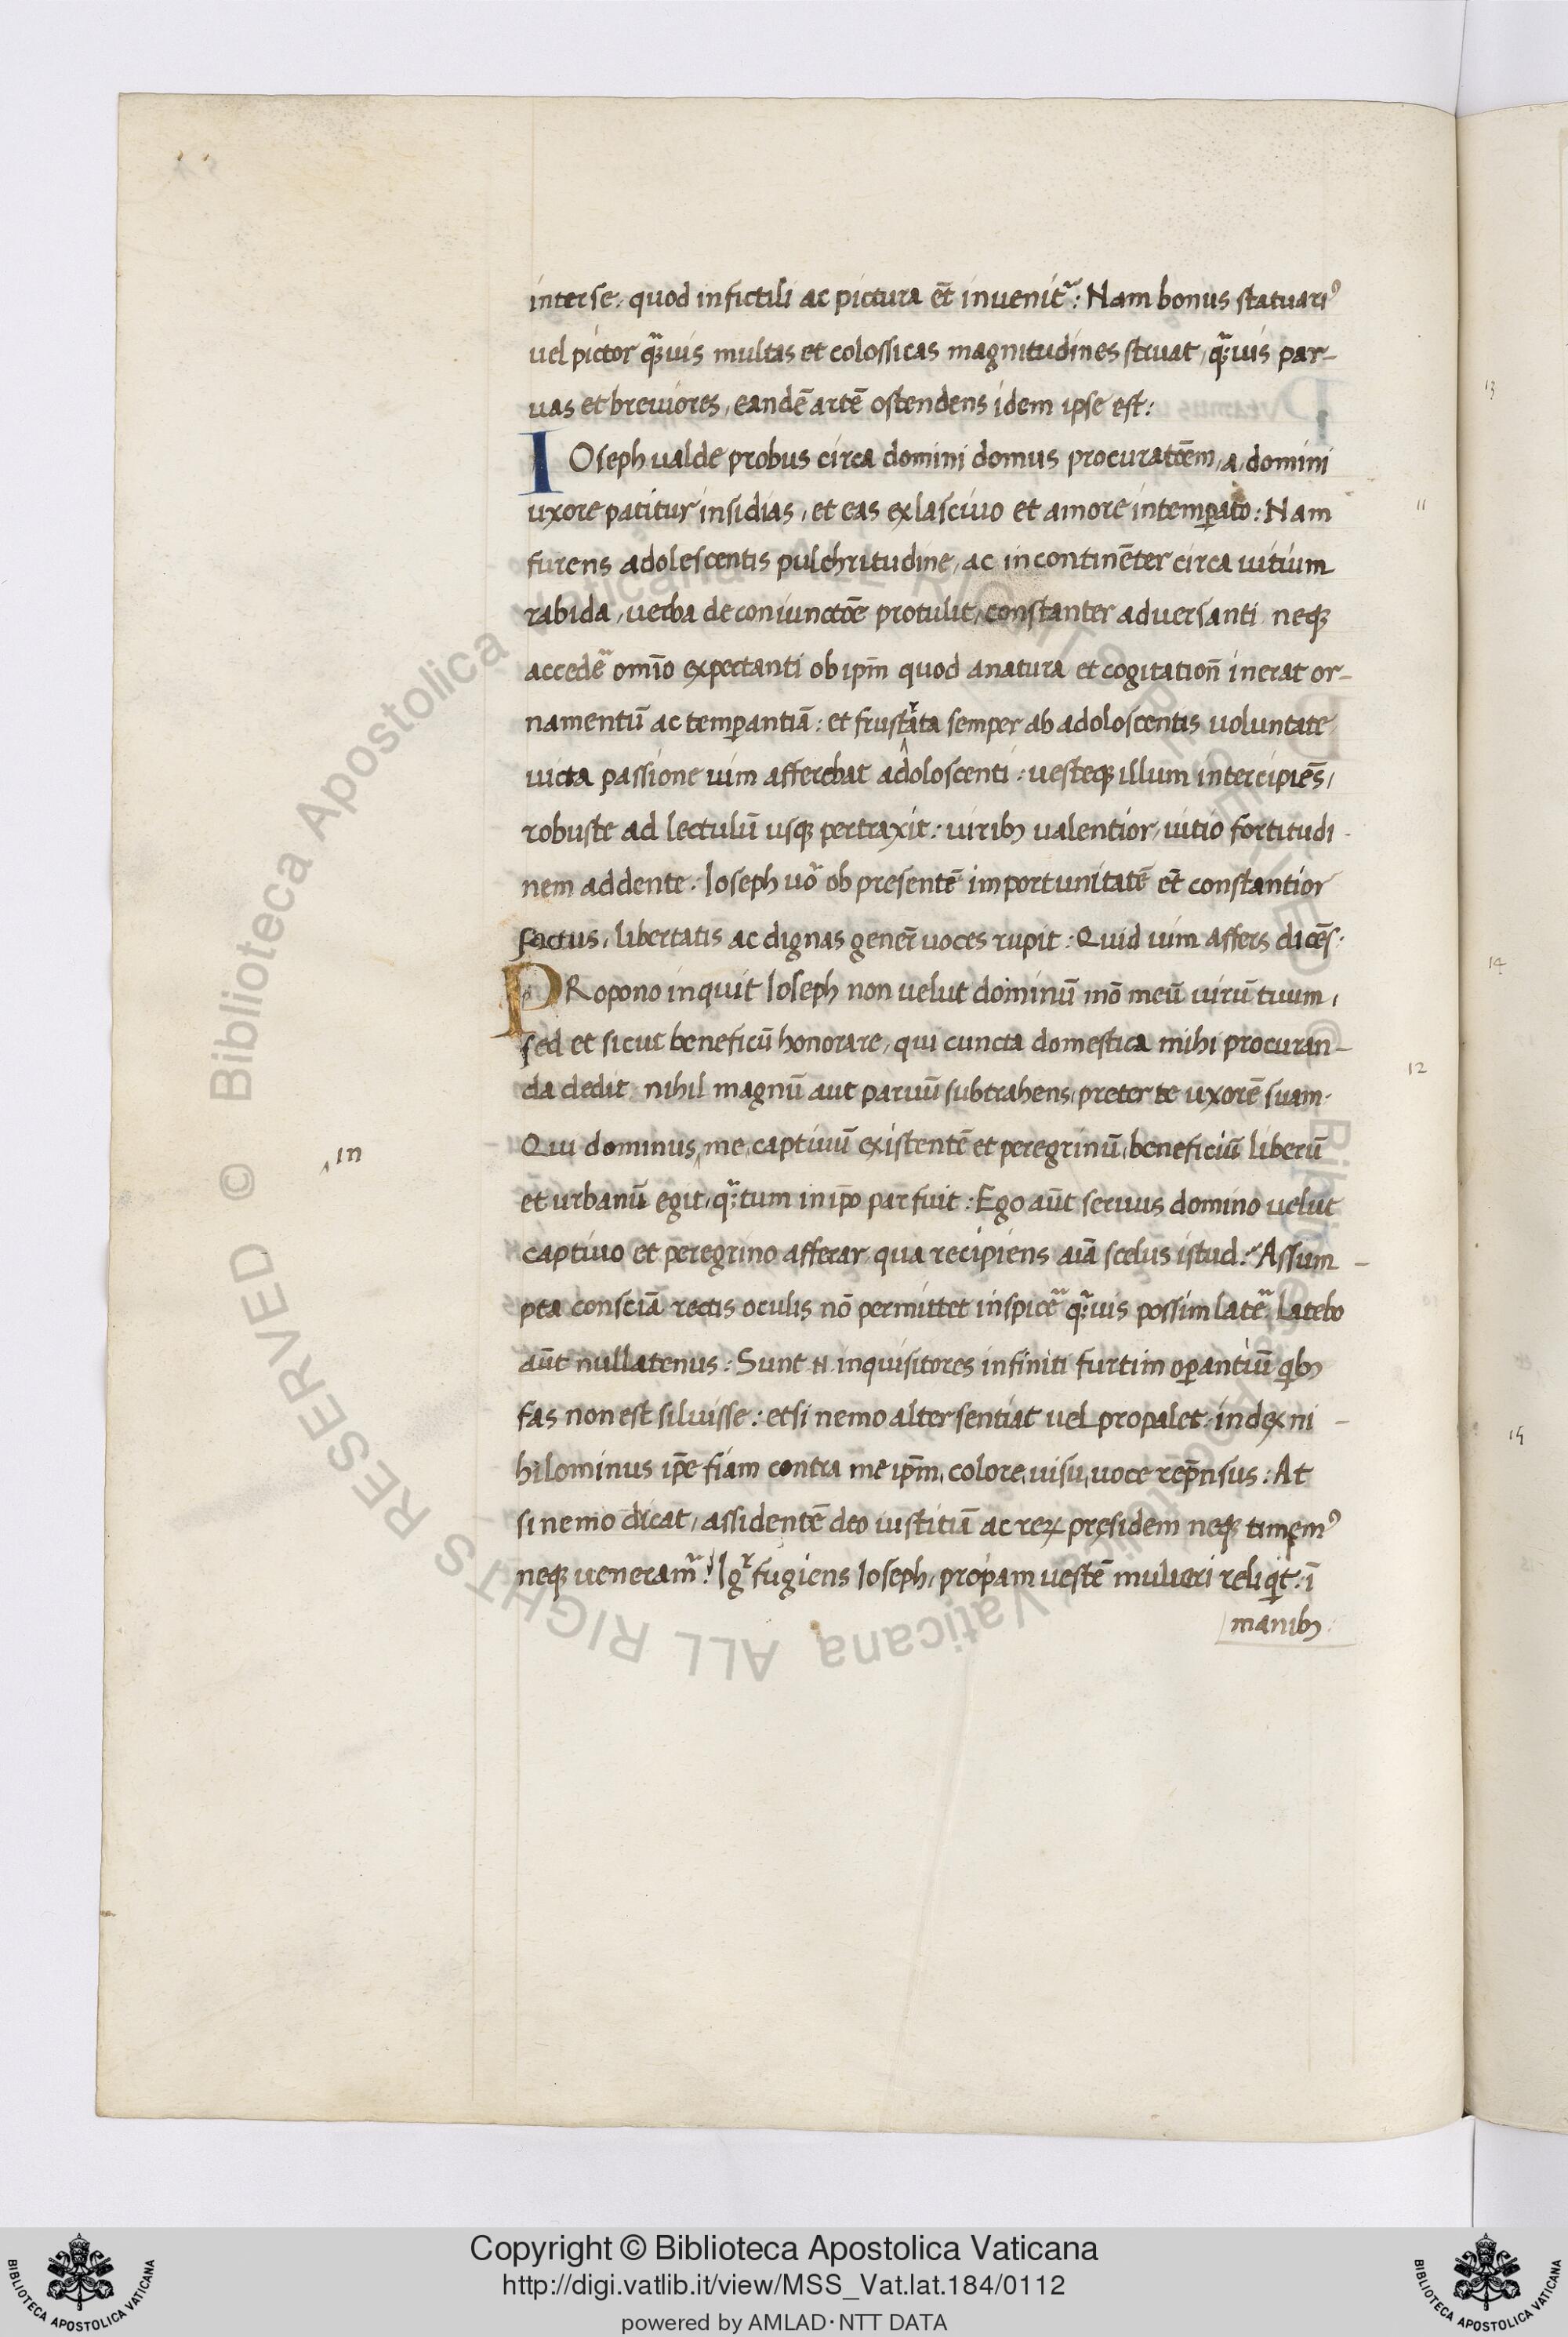 inter se. quod in fictili ac pictura et̄ inuenit᷑: Nam bonus statuariꝰ
uel pictor qᷓuis multas et colossicas magnitudines struat, qᷓuis par-
uas et breuiores, eandē artē ostendens idem ipse est:
IOseph ualde probus circa domini domus procuratōem, a, domini
uxore patitur insidias, et eas ex lasciuo et amore intemꝑato: Nam
furens adolescentis pulchritudine, ac incontinēter circa uitium
rabida, uerba de coniunctōe protulit, constanter aduersanti neqꝫ
accedē omīo expectanti ob ip̄m quod a natura et cogitation̄ inerat or-
namentū ac temꝑantiā: et frustrata semper ab adoloscentis uoluntate
uicta passione uim afferebat adoloscenti: uesteqꝫ illum intercipiēs,
robuste ad lectulū usqꝫ pertraxit: uiribꝫ ualentior, uitio fortitudi-
nem addente: Ioseph uō ob presentē importunitatē et̄ constantior
factus, libertatis ac dignas gener̄ uoces rupit: Quid uim affers dicēs:
PRopono inquit Ioseph non uelut dominū mō meū uirū tuum,
sed et sicut beneficū honorare, qui cuncta domestica mihi procuran-
da dedit nihil magnū aut paruū subtrahens, preter te uxorē suam.
Qui dominus, me, captiuū existentē et peregrinū, beneficiū liberū
‸in
et urbanū egit, qᷓtum in ip̄o par fuit: Ego aūt seruus domino uelut
captiuo et peregrino afferar qua recipiens aīā scelus istud? Assum-
pta consciā rectis oculis nō permittet inspicē qᷓuis possim latē. Latebo
aūt nullatenus: Sunt .N. inquisitores infiniti furtim oꝑantiū qibꝫ
fas non est siluisse: et si nemo alter sentiat uel propalet. index ni-
hilominus ip̄e fiam contra me ip̄m, colore, uisu, uoce rep̄nsus: At
si nemo dicat, assidentē deo iustitiā ac reꝝ presidem neqꝫ timemꝰ
neqꝫ ueneram᷑? Igr fugiens Ioseph, propiam uestē mulieri reliqit: ī
manibꝫ
11
12
13
14
15
© Biblioteca Apostolica Vaticana ALL RIGHTS RESERVED
Copyright © Biblioteca Apostolica Vaticana
http://digi.vatlib.it/view/MSS_Vat.lat.184/0112
powered by AMLAD·NTT DATA
BIBLIOTECA APOSTOLICA VATICANA
BIBLIOTECA APOSTOLICA VATICANA